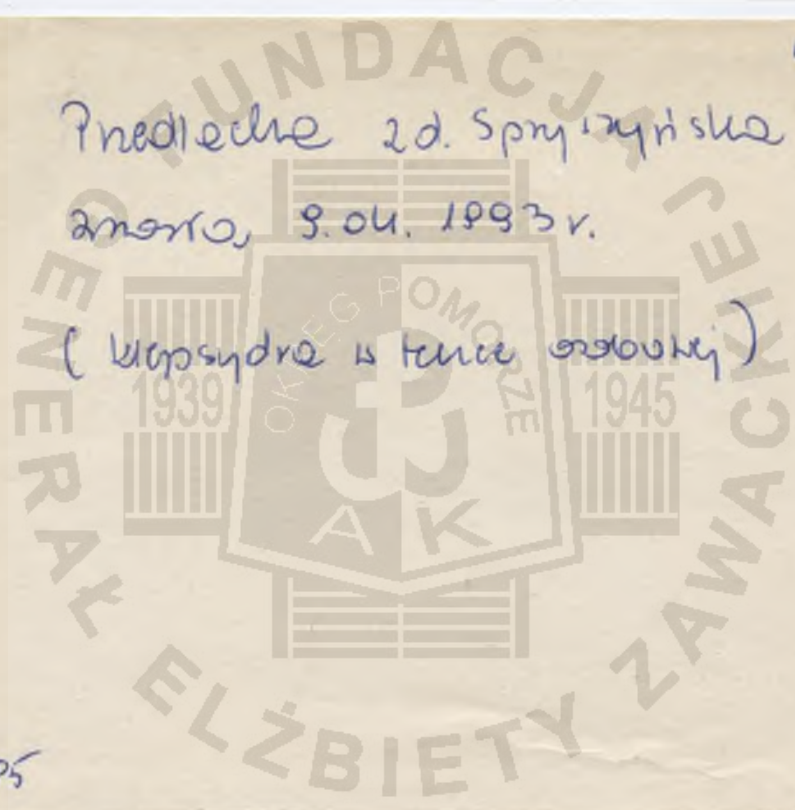 Przedlecka zd. Sprężyńska
zmarła, 9.04. 1993 r.
(klepsydra w teczce osobowej)
FUNDACJA GENERAŁ ELŻBIETY ZAWACKIEJ
OKRĘG POMORZE
1939
1945
AK
05